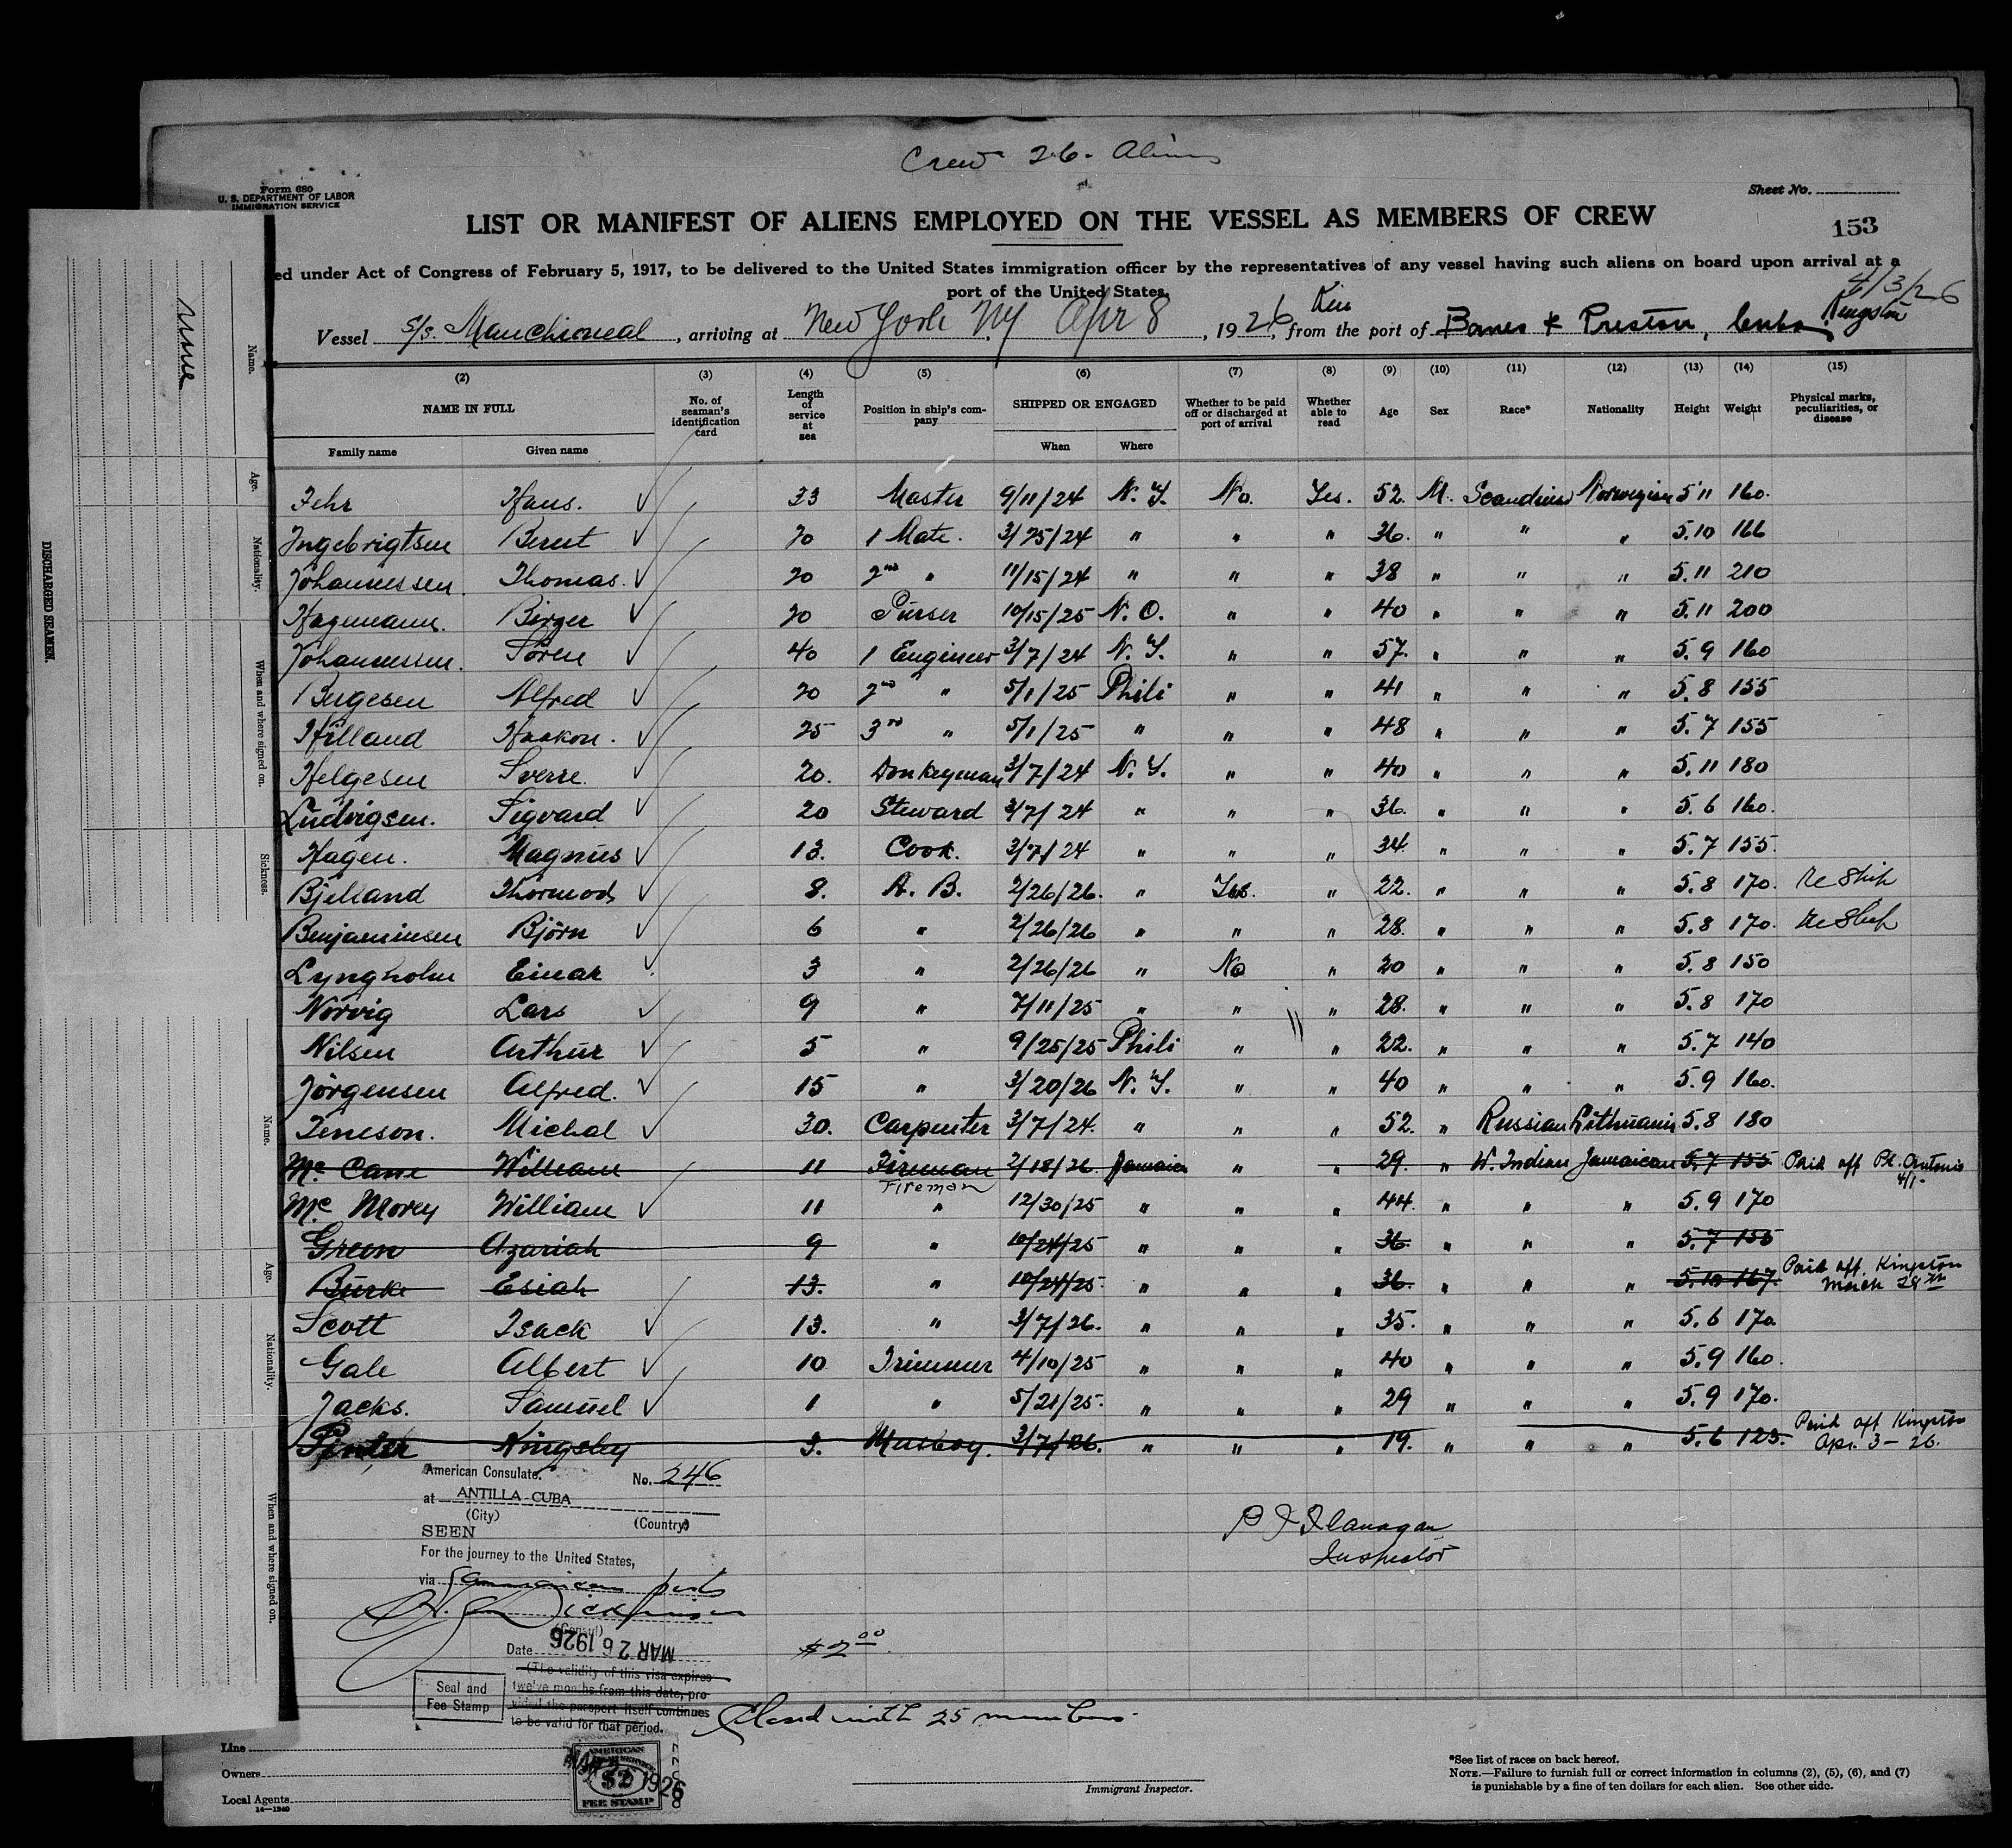 Crew 26 - Aliens
Form 680
U. S. DEPARTMENT OF LABOR
IMMIGRATION SERVICE
Sheet No.
LIST OR MANIFEST OF ALIENS EMPLOYED ON THE VESSEL AS MEMBERS OF CREW
153
ed under Act of Congress of February 5, 1917, to be delivered to the United States immigration officer by the representatives of any vessel having such aliens on board upon arrival at a
port of the United States.
4/3/26
Vessel S/s. Manchioneal, arriving at New York NY Apr 8, 1926, from the port of Banes & Preston, Cuba. Kingston
(2) (3) (4) (5) (6) (7) (8) (9) (10) (11) (12) (13) (14) (15)
NAME IN FULL No. of seaman's identification card Length of service at sea Position in ship's company SHIPPED OR ENGAGED Whether to be paid off or discharged at port of arrival Whether able to read Age Sex Race* Nationality Height Weight Physical marks, peculiarities, or disease
Family name Given name When Where
Fehr Hans. 33 Master 9/11/24 N. Y. No. Yes. 52. M. Norwegian 5'11 160.
Ingebrigtsen Berut 20 1 Mate. 3/25/24 " " " 36. " " " 5.10 166
Johannessen. Thomas. 20 2nd " 11/15/24 " " " 38 " " " 5.11 210
Hagemann. Birger 20 Purser 10/15/25 N. O. " " 40 " " " 5.11 200
Johannessen. Sören 40 1 Engineer 3/7/24 N. Y. " " 57. " " " 5.9 160
Alfred 20 2nd " 5/1/25 Phili " " 41 " " " 5.8 155
Hilland Haakon. 25 3rd " 5/1/25 " " " 48 " " " 5.7 155
Helgesen Sverre. 20. Donkeyman 3/7/24 N. Y. " " 40 " " " 5.11 180
Ludvigsen. Sigvard 20 Steward 3/7/24 " " " 36. " " " 5.6 160.
Hagen. Magnus 13. Cook. 3/7/24 " " " 34. " " " 5.7 155.
Bjelland Thormod 8. A. B. 2/26/26. " Yes. " 22. " " " 5.8 170. Re Ship
Benjaminsen Björn 6 " 2/26/26 " " " 28. " " " 5.8 170. Re Ship
Lyngholm Einar 3 " 2/26/26 " No " 20 " " " 5.8 150
Norvig Lars 9 " 7/11/25 " " " 28. " " " 5.8 170
Nilsen Arthur 5 " 9/25/25 Phili " " 22. " " " 5.7 140
Jörgensen Alfred. 15 " 3/20/26 N. Y. " " 40 " " " 5.9 160.
Michal 30. Carpenter 3/7/24. " " " 52. " Russian 5.8 180
Mc Cane William 11 Fireman 2/18/26. Jamaica " 29. " W. Indian Jamaican 5.7 155 Paid off Pt. Antonio 4/1-
Fireman
Mc Morey William 11 " 12/30/25 " " " 44. " " " 5.9 170
Green Azariah 9 " 10/24/25 " " " 36. " " " 5.7 155
Burke Esiah 13. " 10/24/25. " " " 36. " " " 5.10 167. Paid off Kingston March 28th
Scott Isack 13. " 3/7/26. " " " 35. " " " 5.6 170.
Gale Albert 10 Trimmer 4/10/25 " " " 40 " " " 5.9 160.
Jacks. Samuel 1 " 5/21/25. " " " 29 " " " 5.9 170.
Kingsley 3. Messboy. 3/7/26. " " " 19. " " " 5.6 123. Paid off Kingston Apr. 3 - 26.
American Consulate. No. 246
at ANTILLA - CUBA
(City) (Country)
SEEN
For the journey to the United States,
via Jamaican ports
(Consul)
Date MAR 26 1926
(The validity of this visa expires
twelve months from this date, pro-
vided the passport itself continues
to be valid for that period.
Seal and
Fee Stamp
P J Flanagan
Inspector
$2.00
Closed with 25 members.
AMERICAN
$2
FEE STAMP
1926
Line
Owners
Local Agents
14—1240
Immigrant Inspector.
*See list of races on back hereof.
NOTE.—Failure to furnish full or correct information in columns (2), (5), (6), and (7)
is punishable by a fine of ten dollars for each alien. See other side.
DISCHARGED SEAMEN.
Name.
Age.
Nationality.
When and where signed on.
Sickness.
Name.
Age.
Nationality.
When and where signed on.